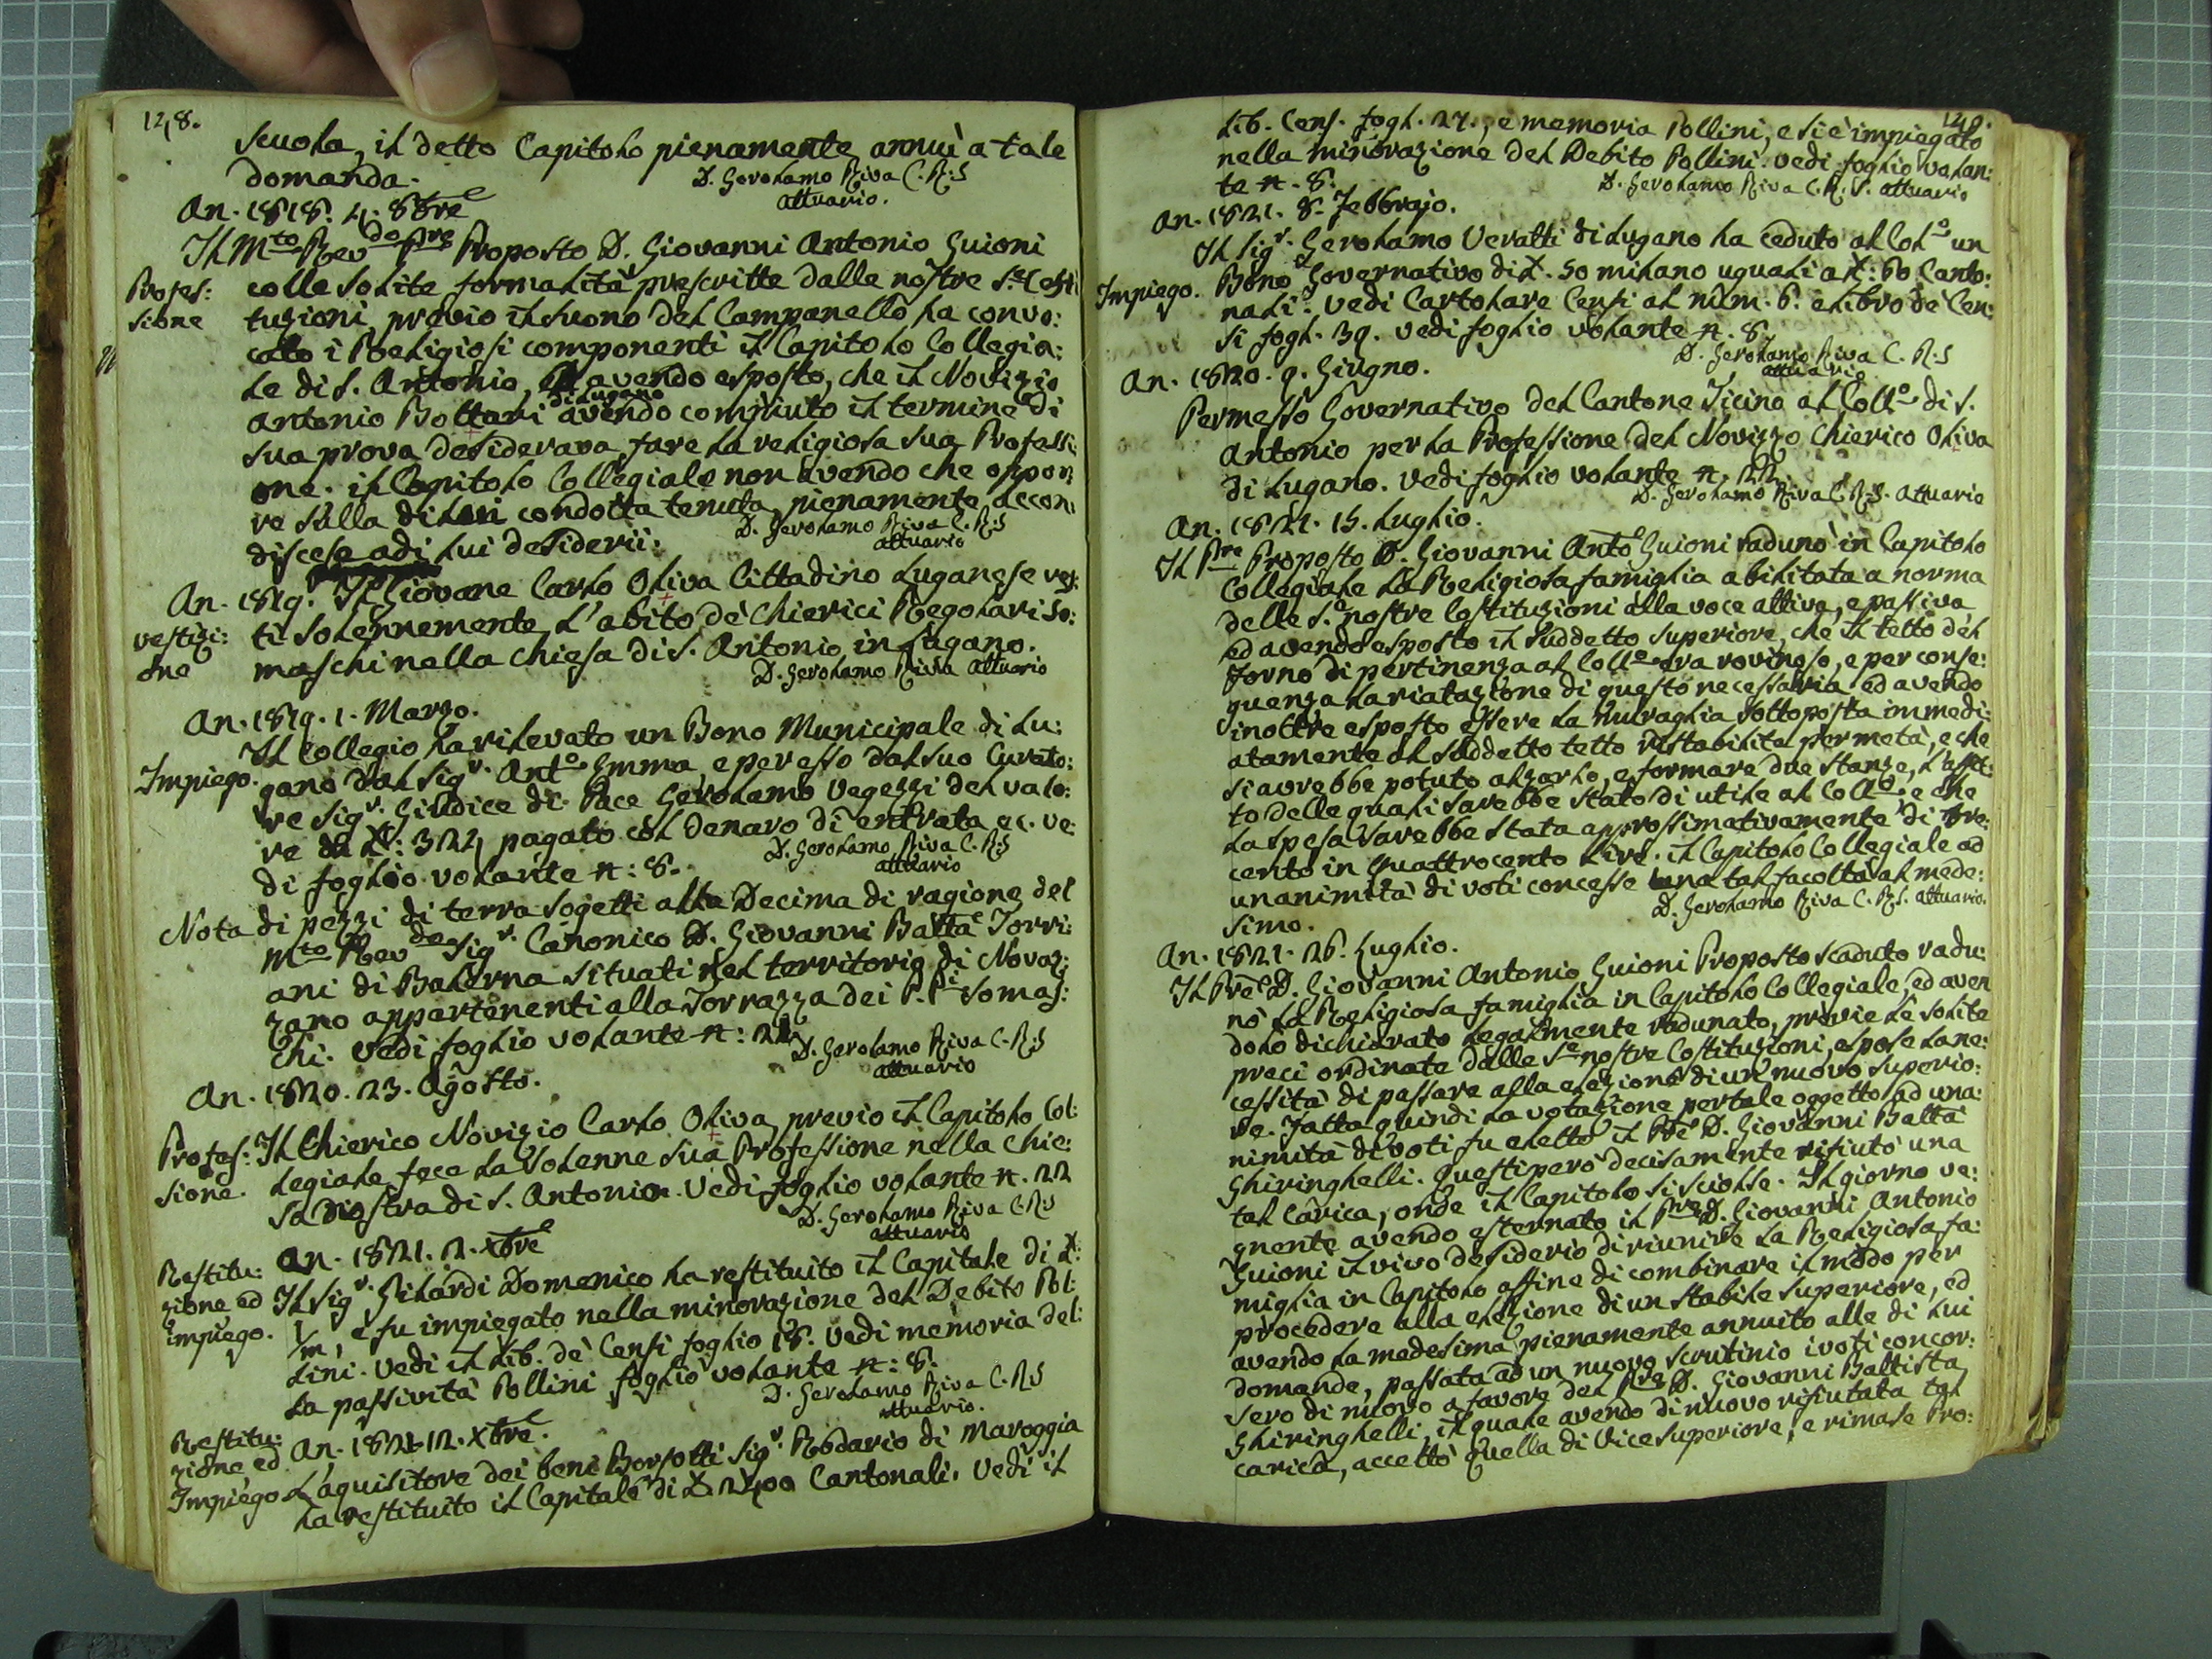 128.
scuola, il detto Capitolo pienamente annuì a tale
domanda.
D. Gerolamo Riva C. R: S
attuario.
An. 1818. 4. 8bre
Il Mto Revdo Pre Proposto D. Giovanni Antonio Guioni
Profes:
sione
colle solite formalità prescritte dalle nostre Se Costi
tuzioni, previo il suono del Campanello ha convo:
cato i Religiosi componenti il Capitolo Collegia:
le di S. Antonio, avendo esposto, che il Novizio
Antonio Bottari di Lugano avendo compiuto il termine di
sua prova desiderava fare la religiosa sua Professi:
one. il Capitolo Collegiale non avendo che oppor:
re sulla di lui condotta tenuta, pienamente accon:
discese a di lui desiderii:
D. Gerolamo Riva C. R: S
attuario
An. 1819. Il Giovane Carlo Oliva Cittadino Luganese ves:
vestizi:
one
tì solennemente l'abito de Chierici Regolari So:
maschi nella Chiesa di S. Antonio in Lugano.
D. Gerolamo Riva attuario
An. 1819. 1. Marzo.
Impiego.
Il Collegio ha rilevato un Bono Municipale di Lu:
gano dal Sigr. Anto Emma, e per esso dal suo Curato:
re Sigr. Giudice di Pace Gerolamo Vegezzi del valo:
re di £: 322, pagato col denaro di entrata ec. ve:
di foglio volante n: 8.
D. Gerolamo Riva C. R: S
attuario
Nota di pezzi di terra sogetti alla Decima di ragione del
Mto Revdo Sigr. Canonico D. Giovanni Batta Torri:
ani di Balerna situati nel territorio di Novaz:
zano appartenenti alla Torrazza dei P. Pi Somas:
chi. Vedi foglio volante n: 21
D. Gerolamo Riva C. R: S
attuario
An. 1820. 23. Agosto.
Profes:
sione.
Il Chierico Novizio Carlo Oliva, previo il Capitolo Col:
legiale fece la solenne sua Professione nella Chie:
sa nostra di S. Antonio. Vedi foglio volante n. 22
D. Gerolamo Riva C. R: S
attuario
An. 1821. 2. Xbre
Restitu:
zione ed
impiego.
Il Sigr. Gilardi Domenico ha restituito il Capitale di £:
1/m, e fu impiegato nella minorazione del Debito Pol:
lini. Vedi il Lib. de Censi foglio 18. Vedi memoria del:
la passività Pollini foglio volante n: 8.
D. Gerolamo Riva C. R: S
attuario.
Restitu:
zione, ed
Impiego
An. 1821 12. Xbre.
L'aquisitore dei beni Borsotti Sigr. Rodario di Maroggia
ha restituito il Capitale di £. 2400 Cantonali. Vedi il
129.
Lib. Cens. fogl. 27., e memoria Pollini, e si è impiegato
nella minorazione del Debito Pollini. vedi foglio volan:
te n. 8.
D. Gerolamo Riva C. R. S. attuario
An. 1821. 8. Febbrajo.
Impiego.
Il Sigr. Gerolamo Veratti di Lugano ha ceduto al Colo un
Bono Governativo di £. 50 milano uguali a £: 60 Canto:
nali. Vedi Cartolare Censi al num. 6. e Libro de Cen:
si fogl. 39. vedi foglio volante n. 8.
D. Gerolamo Riva C. R: S
attuario
An. 1820. 9. Giugno.
Permesso Governativo del Cantone Ticino al Collo di S.
Antonio per la Professione del Novizzo Chierico Oliva
di Lugano. Vedi foglio volante n. 22
D. Gerolamo Riva C. R: S. attuario
An. 1821. 15. Luglio.
Il Pre Proposto D. Giovanni Anto Guioni radunò in Capitolo
Collegiale la Religiosa famiglia abilitata a norma
delle Se nostre Costituzioni alla voce attiva, e passiva
ed avendo esposto il suddetto Superiore, che il tetto del
Forno di pertinenza al Collo era rovinoso, e per conse:
guenza la riatazione di questo necessaria ed avendo
inoltre esposto essere la muraglia sottoposta immedi:
atamente al suddetto tetto ristabilita per metà, e che
si avrebbe potuto alzarlo, e formare due stanze, l'affit:
to delle quali sarebbe stato di utile al Collo e che
la spesa sarebbe stata approssimativamente di tre:
cento in quattrocento Lire. il Capitolo Collegiale ad
unanimità di voti concesse una tal facoltà al mede:
simo.
D. Gerolamo Riva C. R. S. attuario.
An. 1821. 26. Luglio.
Il Pre D. Giovanni Antonio Guioni Proposto scaduto radu:
nò la Religiosa famiglia in Capitolo Collegiale, ed aven
dolo dichiarato legalmente radunato, previe le solite
preci ordinate dalle Se nostre Costituzioni, espose la ne:
cessità di passare alla elezione di un nuovo Superio:
re. Fatta quindi la votazione per tale oggetto ad una:
nimità di voti fu eletto il Pre D. Giovanni Batta
Ghiringhelli. Questi però decisamente rifiutò una
tal Carica, onde il Capitolo si sciolse. Il giorno ve:
gnente avendo esternato il Pre D. Giovanni Antonio
Guioni il vivo desiderio di riunire la Religiosa fa:
miglia in Capitolo affine di combinare il modo per
procedere alla elezione di un stabile superiore, ed
avendo la medesima pienamente annuito alle di lui
domande, passata ad un nuovo scrutinio i voti concor:
sero di nuovo a favore del Pre D. Giovanni Battista
Ghiringhelli, il quale avendo di nuovo rifiutata tal
carica, accettò quella di Vicesuperiore, e rimase Pro: